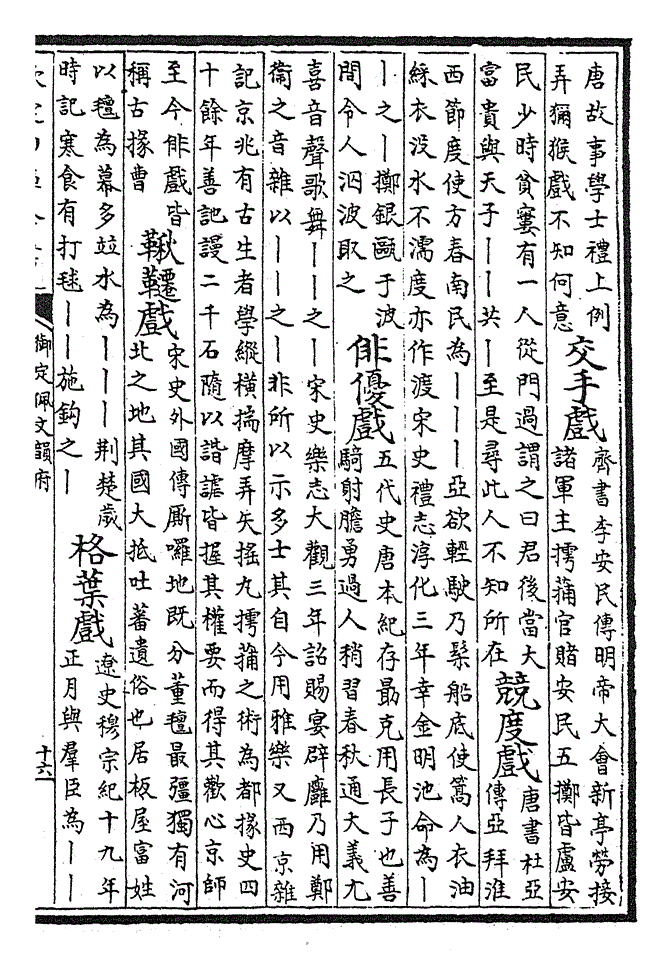 唐故事學士禮上例
弄獮猴戲不知何意
交手戲
齊書李安民傳明帝大會新亭勞接
諸軍主摴蒱官賭安民五擲皆盧安
民少時貧窶有一人從門過謂之曰君後當大
富貴與天子丨丨共丨至是尋此人不知所在
競度戲
唐書杜亞
傳亞拜淮
西節度使方春南民為丨丨丨亞欲輕駛乃髹船底使篙人衣油
綵衣没水不濡度亦作渡宋史禮志淳化三年幸金明池命為丨
丨之丨擲銀甌于波
間令人泅波取之
俳優戲
五代史唐本紀存勗克用長子也善
騎射膽勇過人稍習春秋通大義尤
喜音聲歌舞丨丨之丨宋史樂志大觀三年詔賜宴辟廱乃用鄭
衞之音雜以丨丨之丨非所以示多士其自今用雅樂又西京雜
記京兆有古生者學縱橫揣摩弄矢搖丸摴蒱之術為都掾史四
十餘年善訑謾二千石隨以諧謔皆握其權要而得其歡心京師
至今俳戲皆
稱古掾曹
鞦韆戲
宋史外國傳厮囉地既分董氊最彊獨有河
北之地其國大抵吐蕃遺俗也居板屋富姓
以氊為幕多竝水為丨丨丨荆楚歲
時記寒食有打毬丨丨施鈎之丨
格葉戲
遼史穆宗紀十九年
正月與羣臣為丨丨
御定佩文韻府
十六